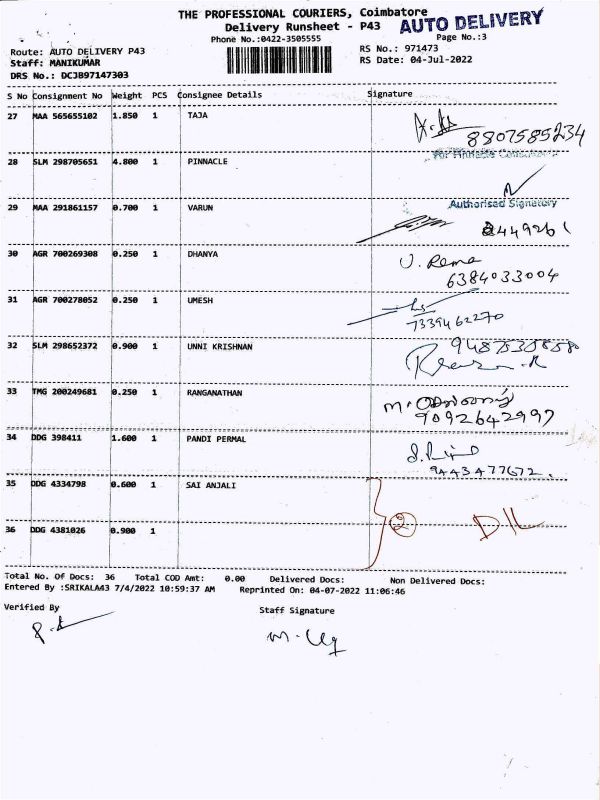 THE PROFESSIONAL COURIERS, Coimbatore
Delivery Runsheet - P43
AUTO DELIVERY
Phone No.:0422-3505555
Page No.:3
Route: AUTO DELIVERY P43
RS No.: 971473
Staff: MANIKUMAR
RS Date: 04-Jul-2022
DRS No.: DCJB97147303
S No Consignment No Weight PCS Consignee Details Signature
27 MAA 565655102 1.850 1 TAJA
8807585234
For Pinnacle
28 SLM 298705651 4.800 1 PINNACLE
Authorised Signatory
29 MAA 291861157 0.700 1 VARUN
30 AGR 700269308 0.250 1 DHANYA
U. Rema
6384033004
31 AGR 700278052 0.250 1 UMESH
7339462270
32 SLM 298652372 0.900 1 UNNI KRISHNAN
33 TMG 200249681 0.250 1 RANGANATHAN
9092642997
34 DDG 398411 1.600 1 PANDI PERMAL
9443477672.
35 DDG 4334798 0.600 1 SAI ANJALI
2
36 DDG 4381026 0.900 1
Total No. Of Docs: 36 Total COD Amt: 0.00 Delivered Docs: Non Delivered Docs:
Entered By :SRIKALA43 7/4/2022 10:59:37 AM Reprinted On: 04-07-2022 11:06:46
Verified By
Staff Signature